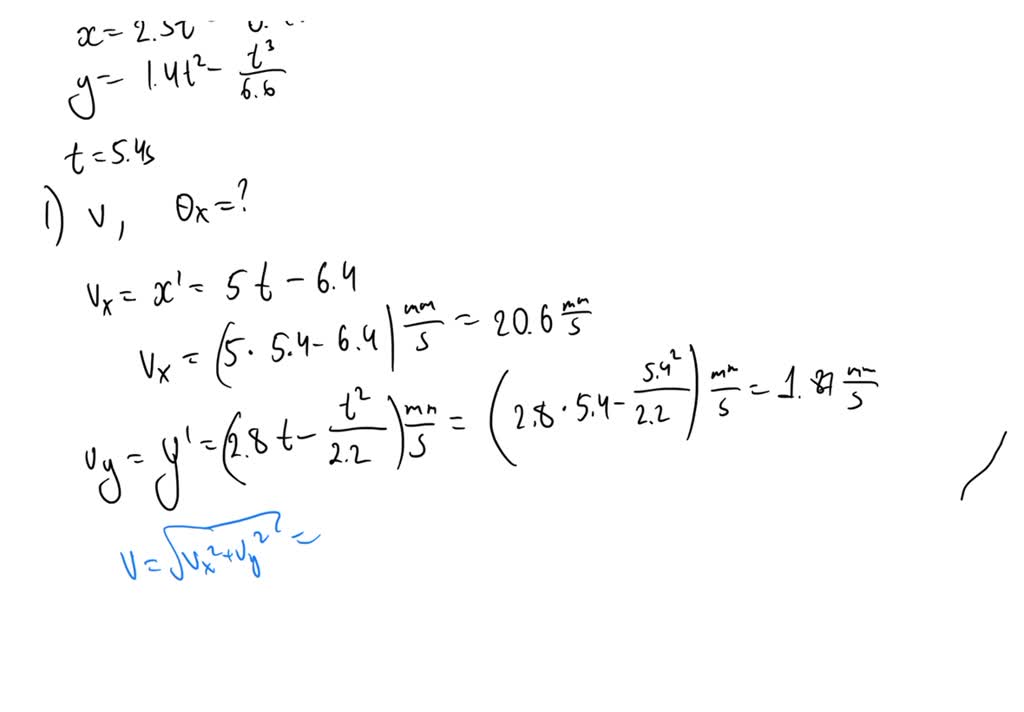 x=
y= 1.4t² - t³/6.6
t = 5.4s
1) v, θx = ?
vx = x' = 5t - 6.4
vx = (5 · 5.4 - 6.4) mm/s = 20.6 mm/s
vy = y' = (2.8t - t²/2.2) mm/s = (2.8 · 5.4 - 5.4²/2.2) mm/s = 1.87 mm/s
v = √vx² + vy² =